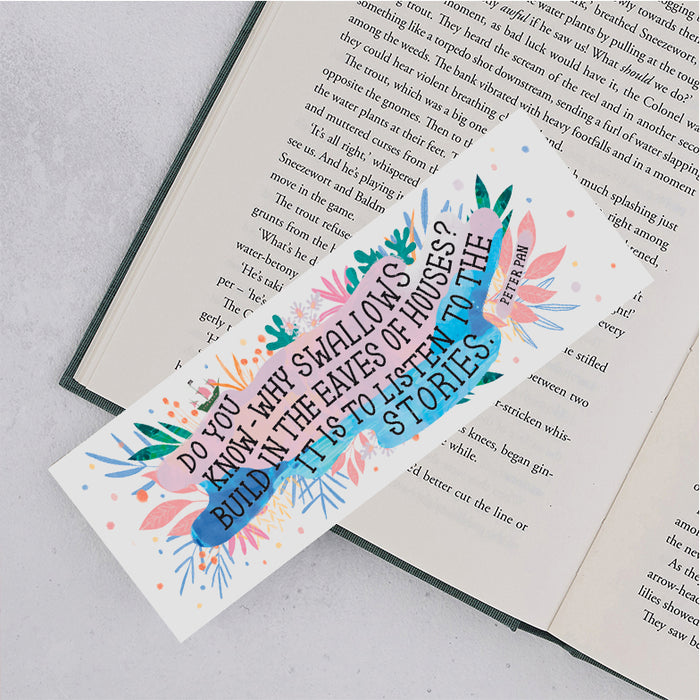 trout. They heard the scream of the reel and in another seco
moment, as bad luck would have it, the Colonel wa
awful if he saw us! What should we do?'
water plants by pulling at the
breathed Sneezewort,
something like a torpedo shot downstream, sending a furl of water slapping
among the weeds. The bank vibrated with heavy footfalls and in a moment
they could hear violent breathing
The trout, which was a big one
opposite the gnomes. Then to th
the water plants at their feet. T
and muttered curses from
'It's all right,' whispered
see us. And he's playing
Sneezewort and Baldm
move in the game.
The trout refuse
grunts from the
'What's he d
water-berony
'He's tak
per – 'he's
The
gerly t
'H
much splashing just
right among
every
he stiffed
between two
r-stricken whis-
s knees, began gin-
while.
'd better cut the line or
DO YOU
KNOW - WHY SWALLOWS
BUILD IN THE EAVES OF HOUSES?
IT IS TO LISTEN TO THE
STORIES.
PETER PAN
amo
the nev
As the
arrow-head
lilies showed
They saw b